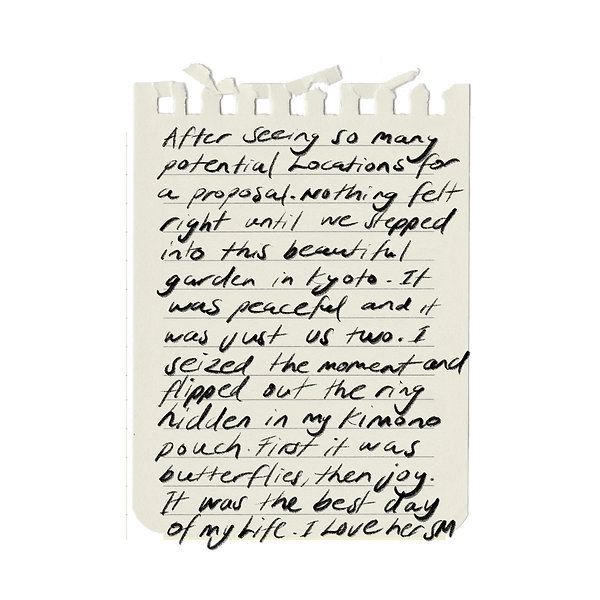 After seeing so many
potential Locations for
a proposal. Nothing felt
right until we stepped
into this beautiful
garden in Kyoto. It
was peaceful and it
was just us two. I
seized the moment and
flipped out the ring
hidden in my kimono
pouch. First it was
butterflies, then joy.
It was the best day
of my Life. I Love her SM